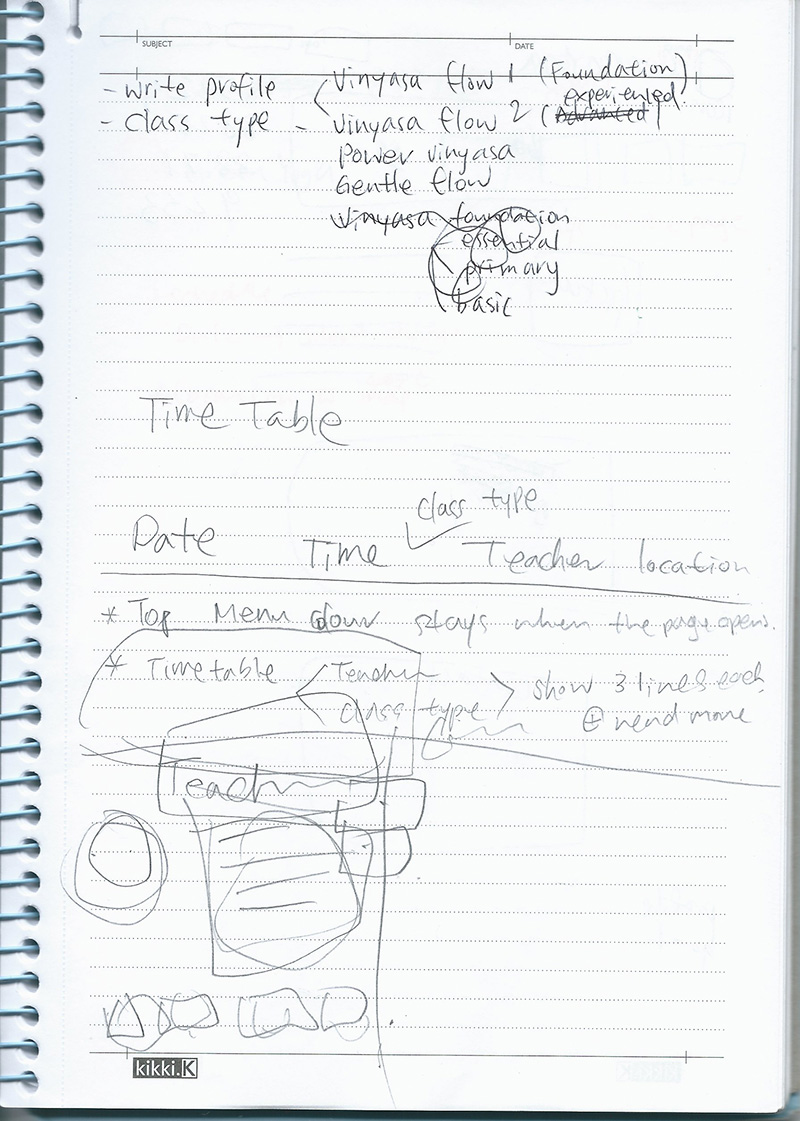 SUBJECT
DATE
- write profile
Vinyasa flow 1 (Foundation)
experienced
- class type - Vinyasa flow 2 (Advanced)
Power vinyasa
Gentle flow
Vinyasa foundation
essential
primary
basic
Time Table
class type
Date Time Teacher location
* Top Menu down stays when the page opens.
* Timetable Teacher
class type
show 3 lines each
⊕ read more
Teacher
kikki.K